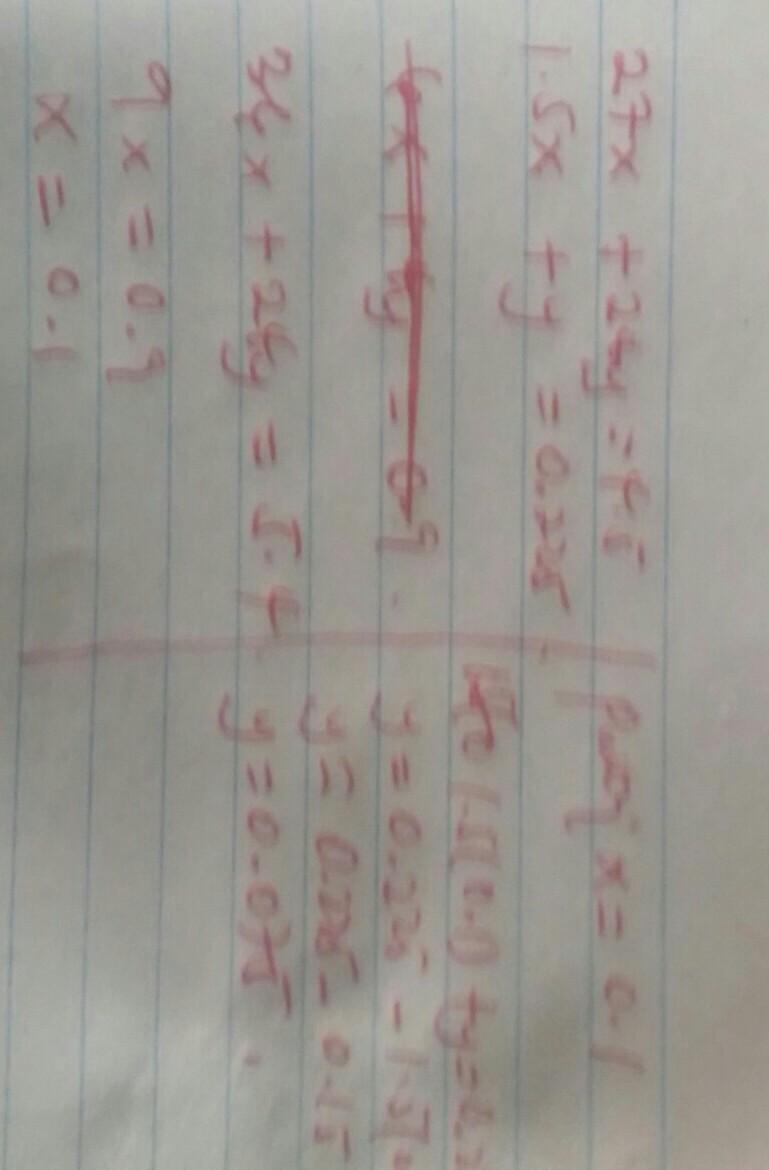 27x + 24y = 4.5
1.5x + y = 0.225
36x + 24y = 5.4
9x = 0.9
x = 0.1
x = 0.1
1.5(0.1) + y = 0.2
y = 0.225 - 1.5(0.
y = 0.225 - 0.15
y = 0.075.